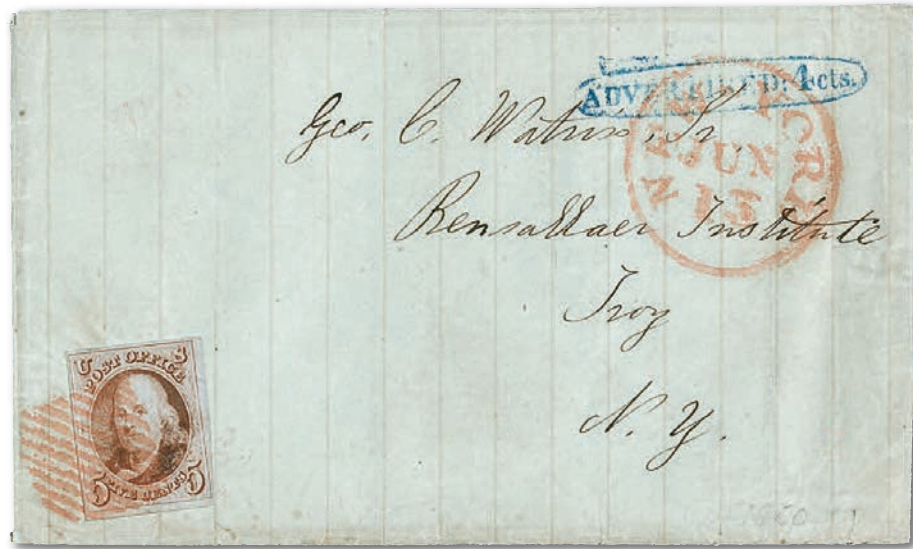 ADVERTISED. 4 cts.
NEW YORK
JUN
13
Geo. C. Watrix, Jr.
Rensallaer Institute
Troy
N. Y.
U S
POST OFFICE
5 FIVE CENTS 5
1850